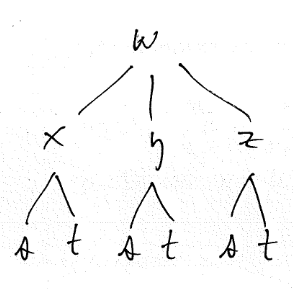 w
x y z
s t s t s t